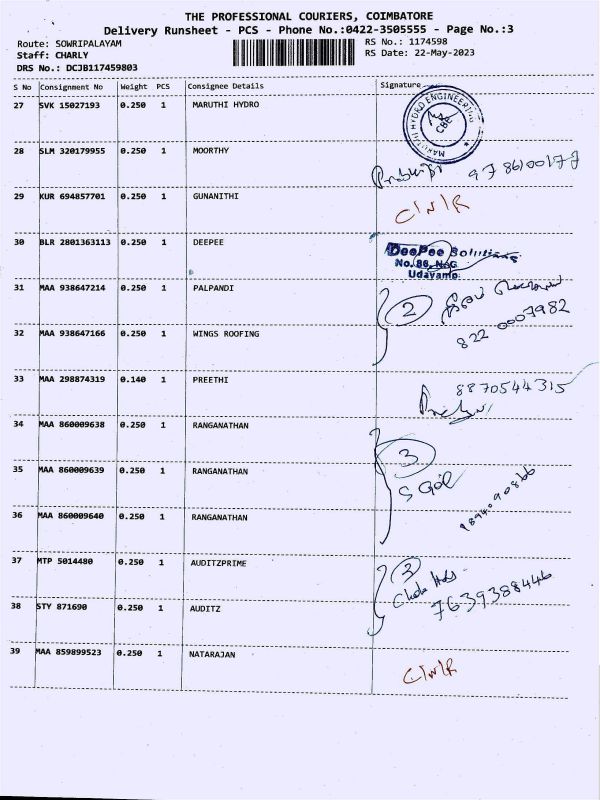 THE PROFESSIONAL COURIERS, COIMBATORE
Delivery Runsheet - PCS - Phone No.:0422-3505555 - Page No.:3
Route: SOWRIPALAYAM
RS No.: 1174598
Staff: CHARLY
RS Date: 22-May-2023
DRS No.: DCJB117459803
S No Consignment No Weight PCS Consignee Details Signature
27 SVK 15027193 0.250 1 MARUTHI HYDRO
MARUTHI HYDRO ENGINEERING
CBE
28 SLM 320179955 0.250 1 MOORTHY
29 KUR 694857701 0.250 1 GUNANITHI
C/N/R
30 BLR 2801363113 0.250 1 DEEPEE
DeePee Solutions
No.86, NGG
Udayamp
31 MAA 938647214 0.250 1 PALPANDI
2
822 0007982
32 MAA 938647166 0.250 1 WINGS ROOFING
33 MAA 298874319 0.140 1 PREETHI
8870544315
34 MAA 860009638 0.250 1 RANGANATHAN
3
35 MAA 860009639 0.250 1 RANGANATHAN
36 MAA 860009640 0.250 1 RANGANATHAN
37 MTP 5014480 0.250 1 AUDITZPRIME
2
7639388446
38 STY 871690 0.250 1 AUDITZ
39 MAA 859899523 0.250 1 NATARAJAN
C/N/R